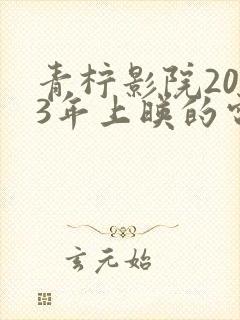 青柠影院20
3年上映的
玄元始